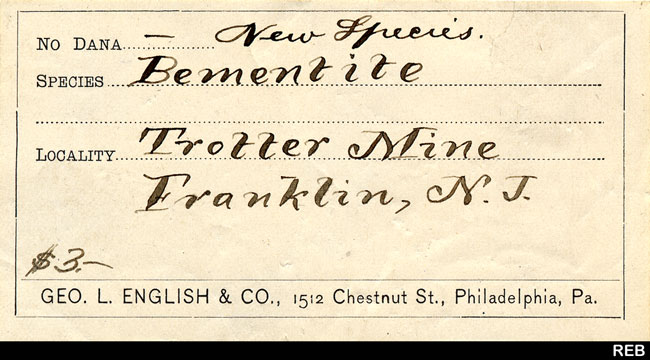 No Dana — New Species.
Species Bementite
Locality Trotter Mine
Franklin, N.J.
$3.—
GEO. L. ENGLISH & CO., 1512 Chestnut St., Philadelphia, Pa.
REB